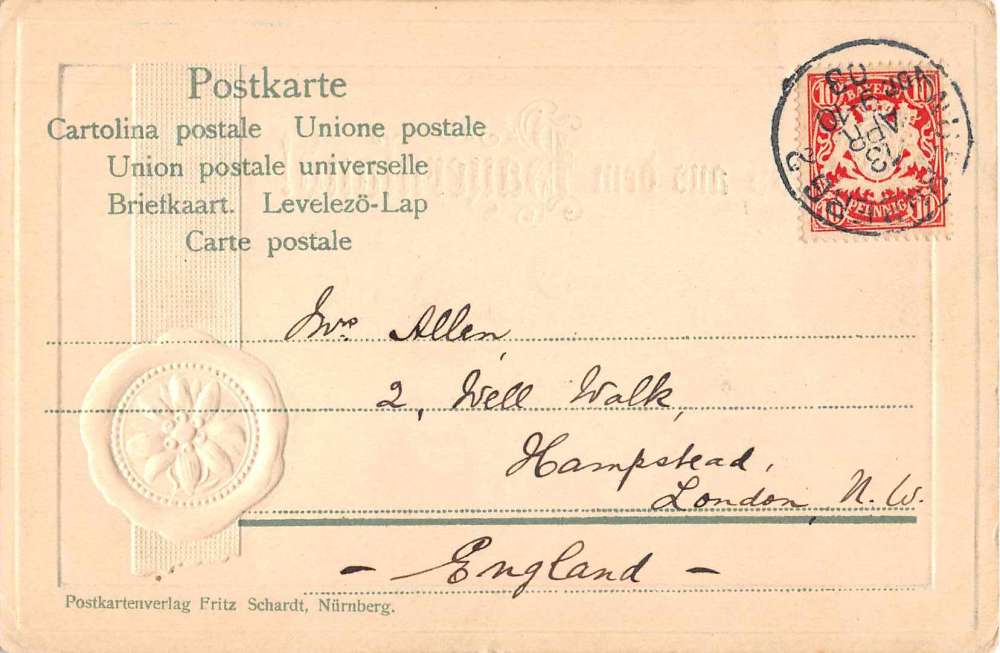 Postkarte
Cartolina postale Unione postale
Union postale universelle
Briefkaart. Levelezö-Lap
Carte postale
BAYERN
10 10
PFENNIG
10 10
13
APR
03
aus dem Bayernland!
Mrs Allen,
2, Well Walk,
Hampstead,
London, N. W.
- England -
Postkartenverlag Fritz Schardt, Nürnberg.